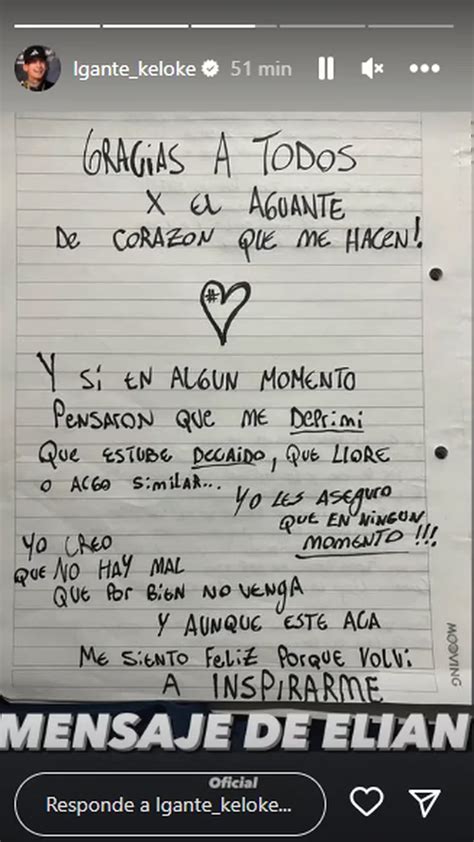 lgante_keloke 51 min
GRACIAS A TODOS
X EL AGUANTE
De CORAZON QUE ME HACEN!
#
Y SI EN ALGUN MOMENTO
PENSARON QUE ME DEPRIMI
QUE ESTUBE DECAIDO, QUE LLORE
O ALGO SIMILAR...
YO LES ASEGURO
QUE EN NINGUN
MOMENTO!!!
YO CREO
QUE NO HAY MAL
QUE POR BIEN NO VENGA
Y AUNQUE ESTE ACA
ME SIENTO FELIZ PORQUE VOLVI
A INSPIRARME
MOOVING
MENSAJE DE ELIAN
Oficial
Responde a lgante_keloke...